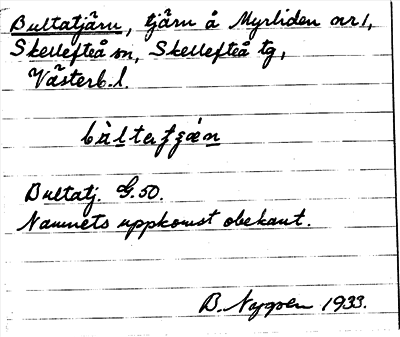 Bultatjärn, tjärn å Myrliden nr 1,
Skellefteå sn, Skellefteå tg,
Västerb. l.
Bultatj. G.50.
Namnets uppkomst obekant.
B. Nygren 1933.